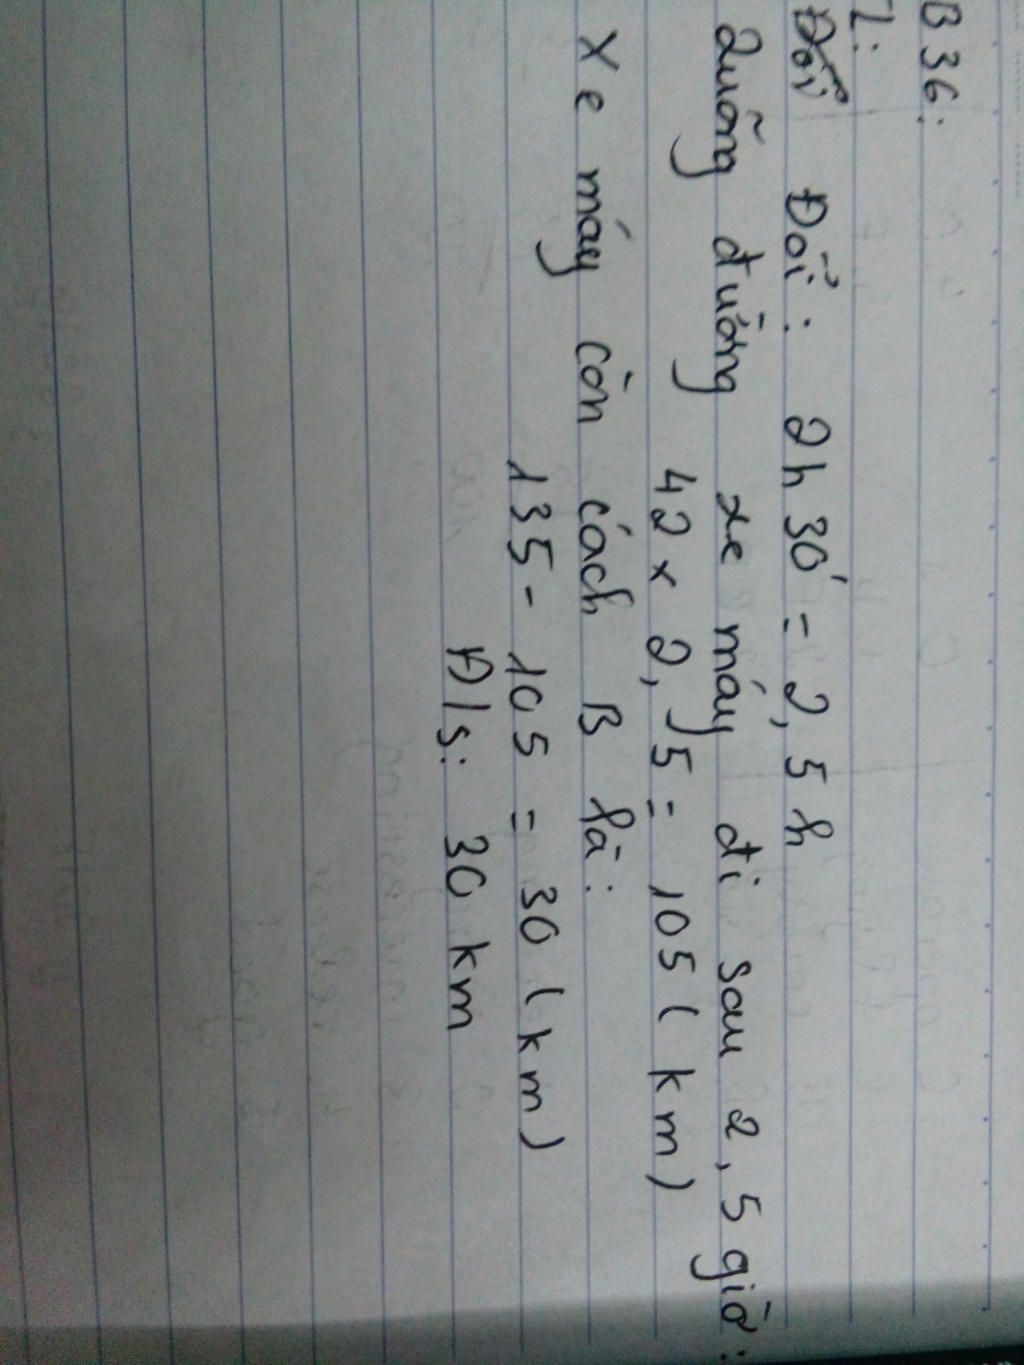 B 36:
1:
Đổi : 2h 30' = 2,5 h
Quãng đường xe máy đi sau 2,5 giờ :
42 x 2,5 = 105 ( km )
Xe máy còn cách B là :
135 - 105 = 30 ( km )
Đ/s: 30 km